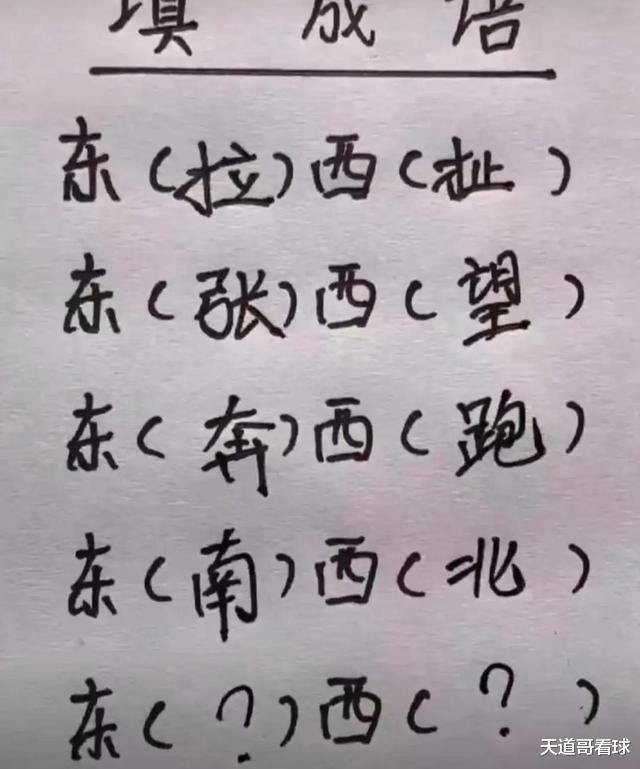 填成语
东(拉)西(扯)
东(张)西(望)
东(奔)西(跑)
东(南)西(北)
东(?)西(?)
天道哥看球